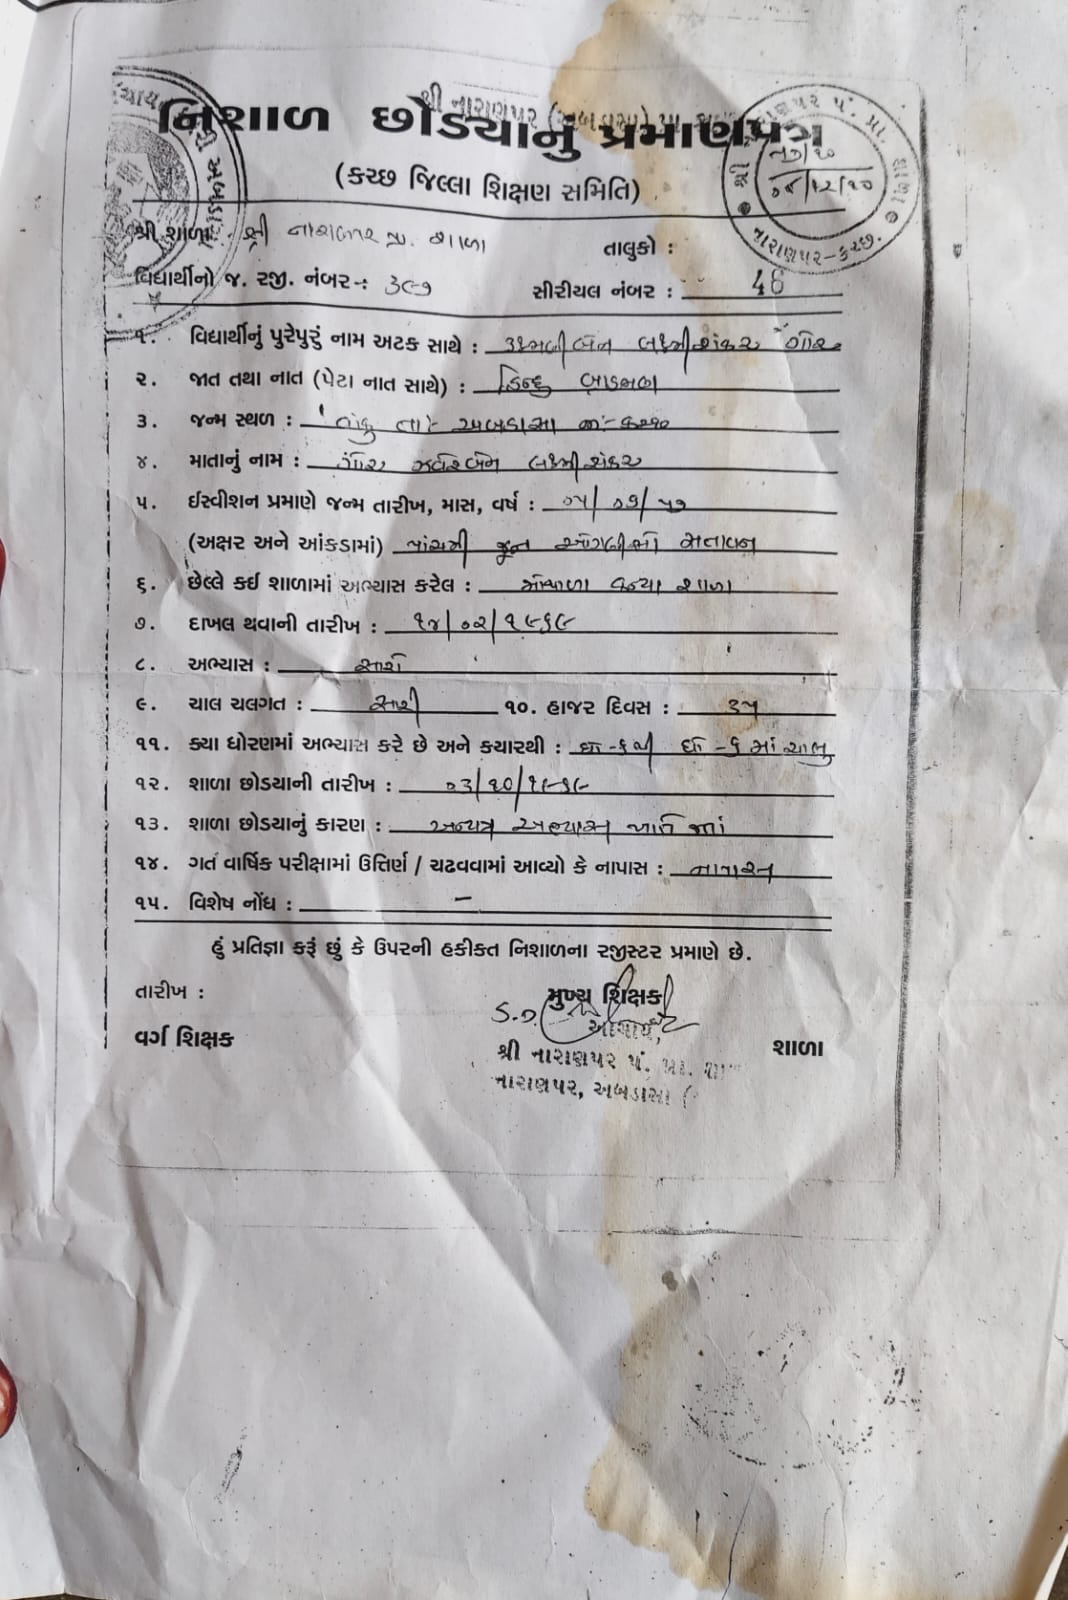 શ્રી નારાણપર (અબડાસા) પં.
નિશાળ છોડયાનું પ્રમાણપત્ર
(કચ્છ જિલ્લા શિક્ષણ સમિતિ)
શ્રી નારાણપર પં. પ્રા. શાળા
નારાણપર-કચ્છ.
અબડાસા
શ્રી શાળા : શ્રી નારાણપર પ્રા. શાળા તાલુકો :
વિદ્યાર્થીનો જ. રજી. નંબર -: ૩૯૧ સીરીયલ નંબર : 46
૧. વિદ્યાર્થીનું પુરેપુરું નામ અટક સાથે : રૂક્ષ્મણીબેન લક્ષ્મીશંકર ગોર
૨. જાત તથા નાત (પેટા નાત સાથે) : હિન્દુ બ્રાહ્મણ
૩. જન્મ સ્થળ : તા:- અબડાસા જી:- કચ્છ
૪. માતાનું નામ : ગોર ઝવેરબેન લક્ષ્મીશંકર
૫. ઈસ્વીશન પ્રમાણે જન્મ તારીખ, માસ, વર્ષ : ૦૫/૦૬/૫૭
(અક્ષર અને આંકડામાં) પાંચમી જુન ઓગણીસો સતાવન
૬. છેલ્લે કઈ શાળામાં અભ્યાસ કરેલ : કન્યા શાળા
૭. દાખલ થવાની તારીખ : ૧૪/૦૨/૧૯૬૯
૮. અભ્યાસ : સારો
૯. ચાલ ચલગત : સારી ૧૦. હાજર દિવસ : ૩૫
૧૧. ક્યા ધોરણમાં અભ્યાસ કરે છે અને કયારથી : ધો - ૬ માં ચાલુ
૧૨. શાળા છોડયાની તારીખ : ૦૩/૧૦/૧૯૬૯
૧૩. શાળા છોડયાનું કારણ : અન્યત્ર અભ્યાસ જતાં
૧૪. ગત વાર્ષિક પરીક્ષામાં ઉત્તિર્ણ / ચઢવવામાં આવ્યો કે નાપાસ :
૧૫. વિશેષ નોંધ : –
હું પ્રતિજ્ઞા કરૂં છું કે ઉપરની હકીકત નિશાળના રજીસ્ટર પ્રમાણે છે.
તારીખ : મુખ્ય શિક્ષક
S.D.
આચાર્ય,
વર્ગ શિક્ષક શાળા
શ્રી નારાણપર પં. પ્રા.
નારાણપર, અબડાસા (